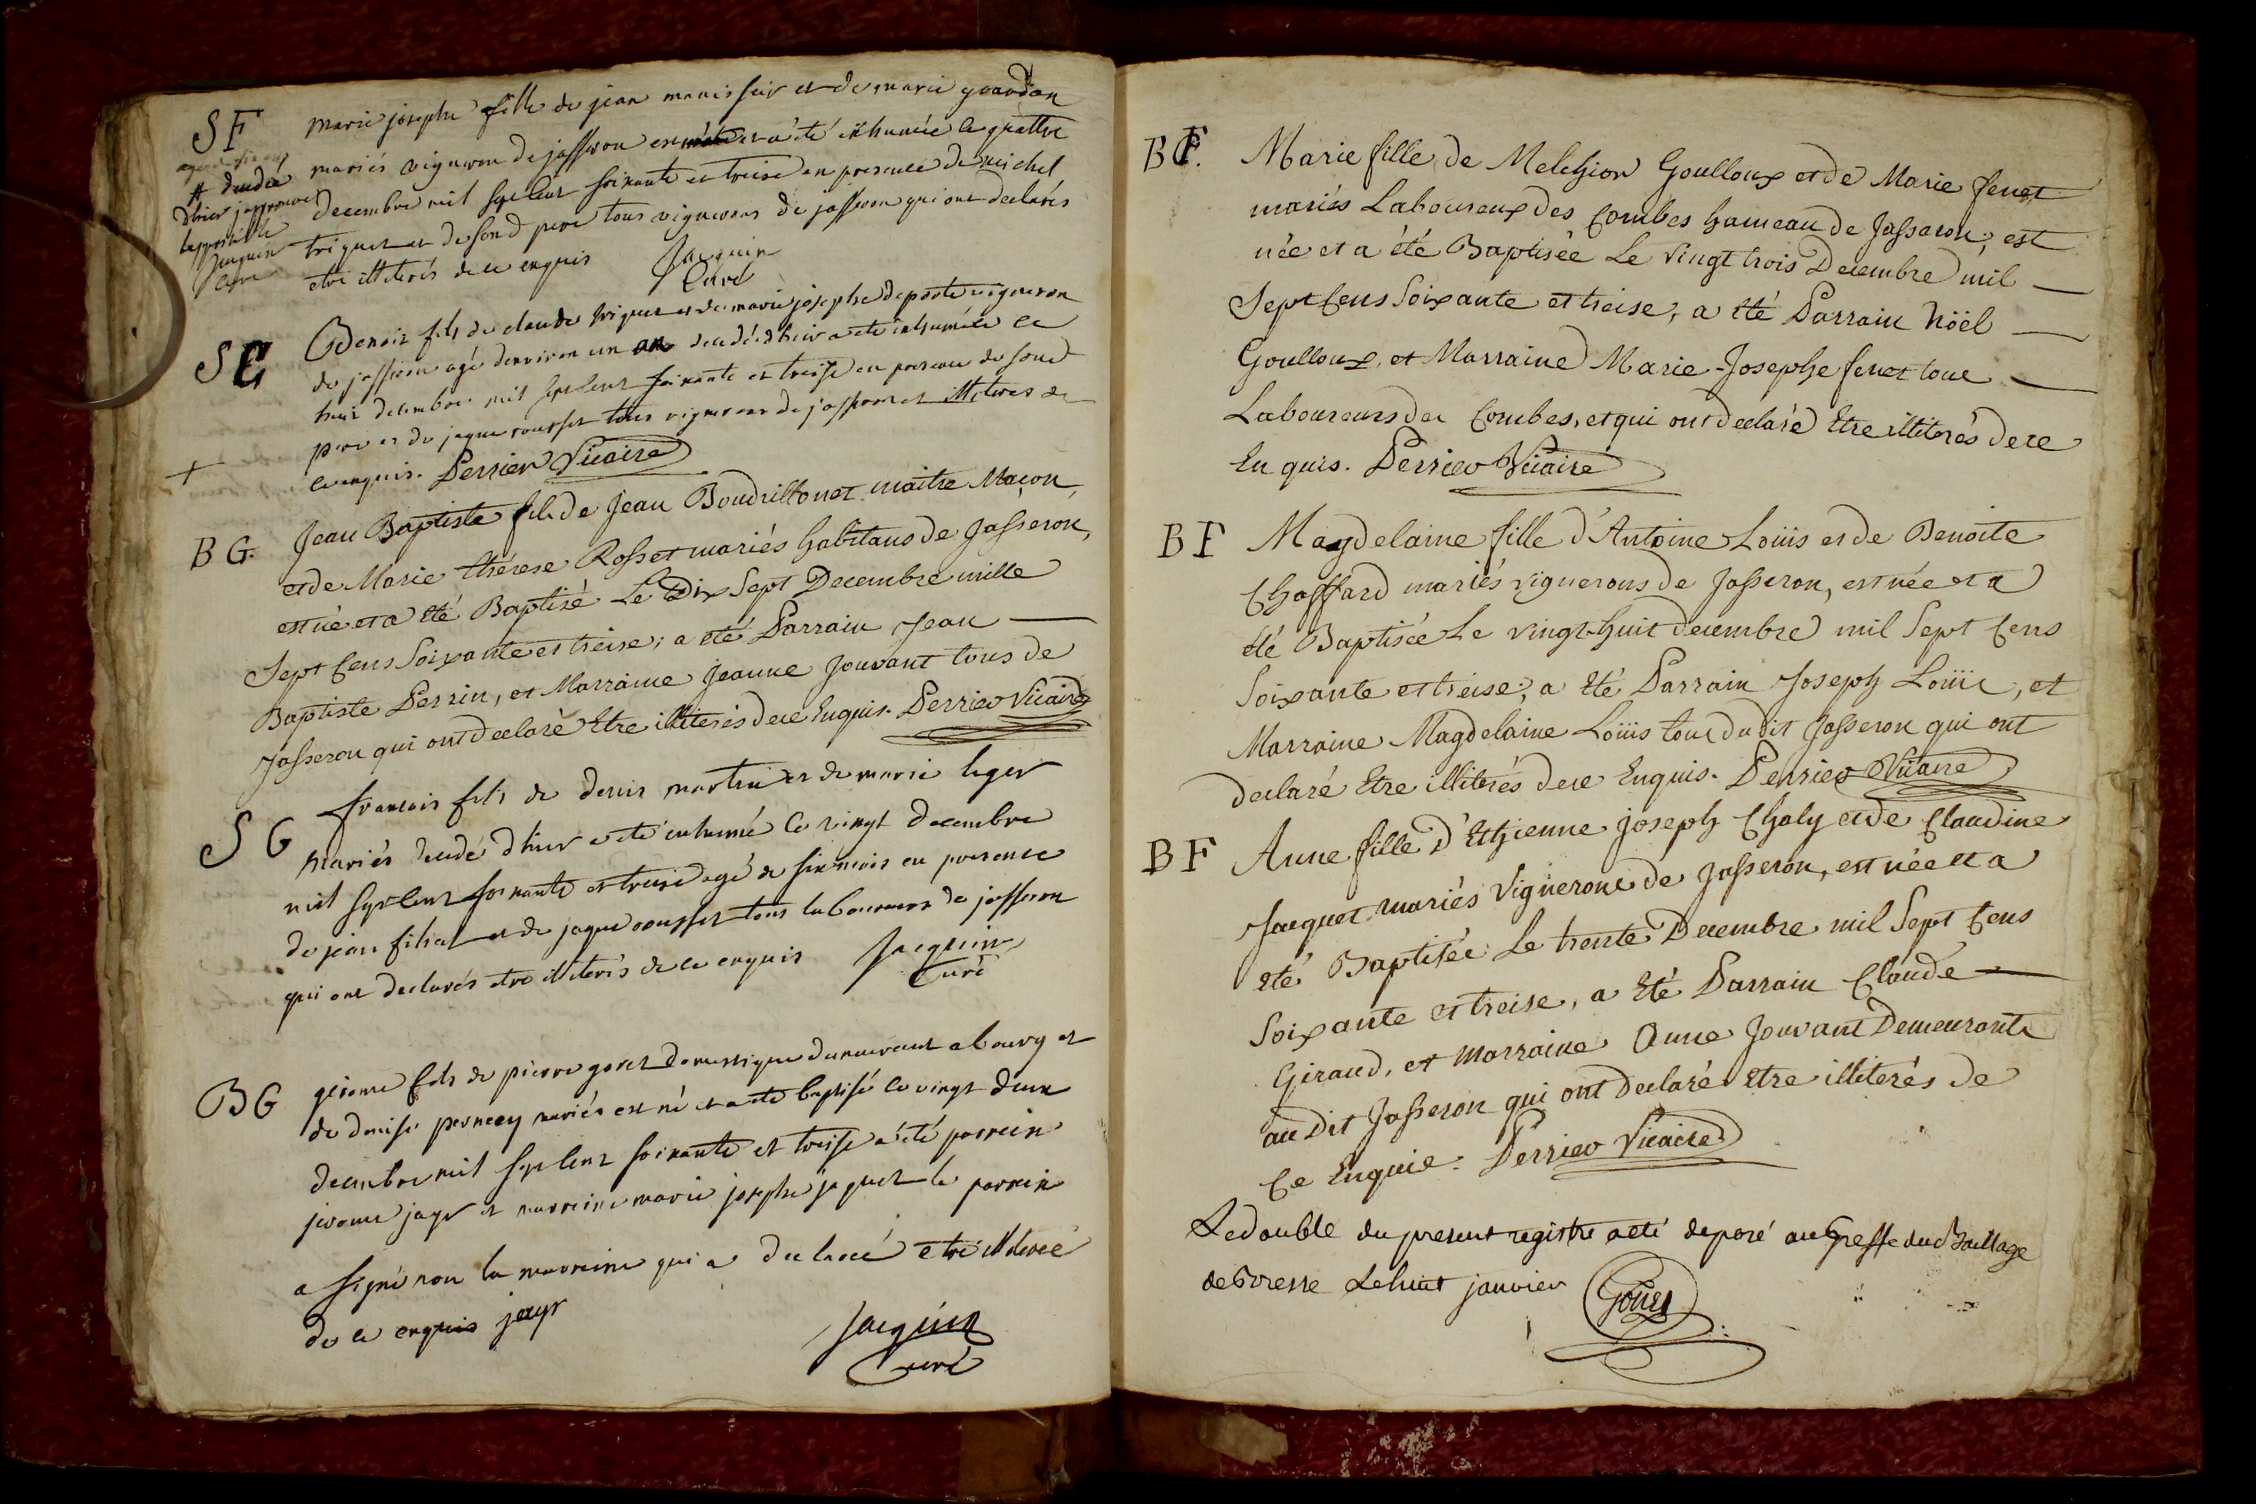 SF
marie josephe fille de jean
mariés vigneron de jasseron a été inhumée le quattre
decembre mil sept cent soixante et treise en presence de michel
triquet et de sond pere tous vignerons de jasseron qui ont declarés
etre illiterés de ce enquis Jacquin
Curé
decedée
d'hier j'approuve
Jacquin
Curé
SG
Denis fils de claude triquet et de marie josephe deporte vigneron
de jasseron agé denviron un an decédé d'hier a été inhumé le
huit decembre mil sept cent soixante et treise en presence de sond
pere et de jaque rousset tous vignerons de jasseron et illiteres de
ce enquis. Perrier Vicaire
+
BG.
Jean Baptiste fils de Jean Boudrillonet maitre Maçon,
et de Marie thérese Rosset mariés habitans de Jasseron,
est né et a été Baptisé Le Dix Sept Decembre mille
Sept Cens Soixante et treise; a eté Parrain Jean
Baptiste Perrin, et Marraine Jeanne Jouvant tous de
Jasseron qui ont declaré Etre illiterés de ce Enquis. Perrier Vicaire
SG
francois fils de denis martin et de marie leger
mariés decedé d'hier a eté inhumé le vingt decembre
mil sept cent soixante et treise agé de six mois en presence
de jean filiat et de jaque rousset tous laboureurs de jasseron
qui ont declarés etre illiterés de ce enquis Jacquin
Curé
BG
gerome fils de pierre goret domestique demeurant a bourg et
de denise perncey mariés est né et a été baptisé le vingt deux
decembre mil sept cent soixante et treise a été parrein
jerome jayr et marreine marie josephe jaquet le parrein
a signé non la marreine qui a declaré etre illiterée
de ce enquis jayr
Jacquin
Curé
BF.
Marie fille de Melchior Goulloux et de Marie fenet
mariés Laboureux des Combes hameau de Jasseron, est
née et a été Baptisée Le Vingt trois Decembre mil
Sept Cens Soixante et treise; a été Parrain Nöel
Goulloux, et Marraine Marie-Josephe fenet tous
Laboureurs des Combes, et qui ont declaré Etre illiterés de ce
Enquis. Perrier Vicaire
BF
Magdelaine fille d'Antoine Loüis et de Benoite
Chaffard mariés vignerons de Jasseron, est née et a
été Baptisée Le vingt-huit decembre mil Sept Cens
Soixante et treise; a Eté Parrain Joseph Loüis, et
Marraine Magdelaine Loüis tous dudit Jasseron qui ont
declaré Etre illiterés de ce Enquis. Perrier Vicaire
BF
Anne fille d'Ethienne joseph Chaly et de Claudine
Jacquet mariés Vignerons de Jasseron, est née et a
Eté Baptisée Le trente Decembre mil Sept Cens
Soixante et treise, a Eté Parrain Claude
Giraud, et Marraine Anne Jouvant Demeurants
au Dit Jasseron qui ont declaré Etre illiterés de
Ce Enquis. Perrier Vicaire
Le double du present registre a eté deposé au Greffe du Baillage
de Bresse Le huit janvier